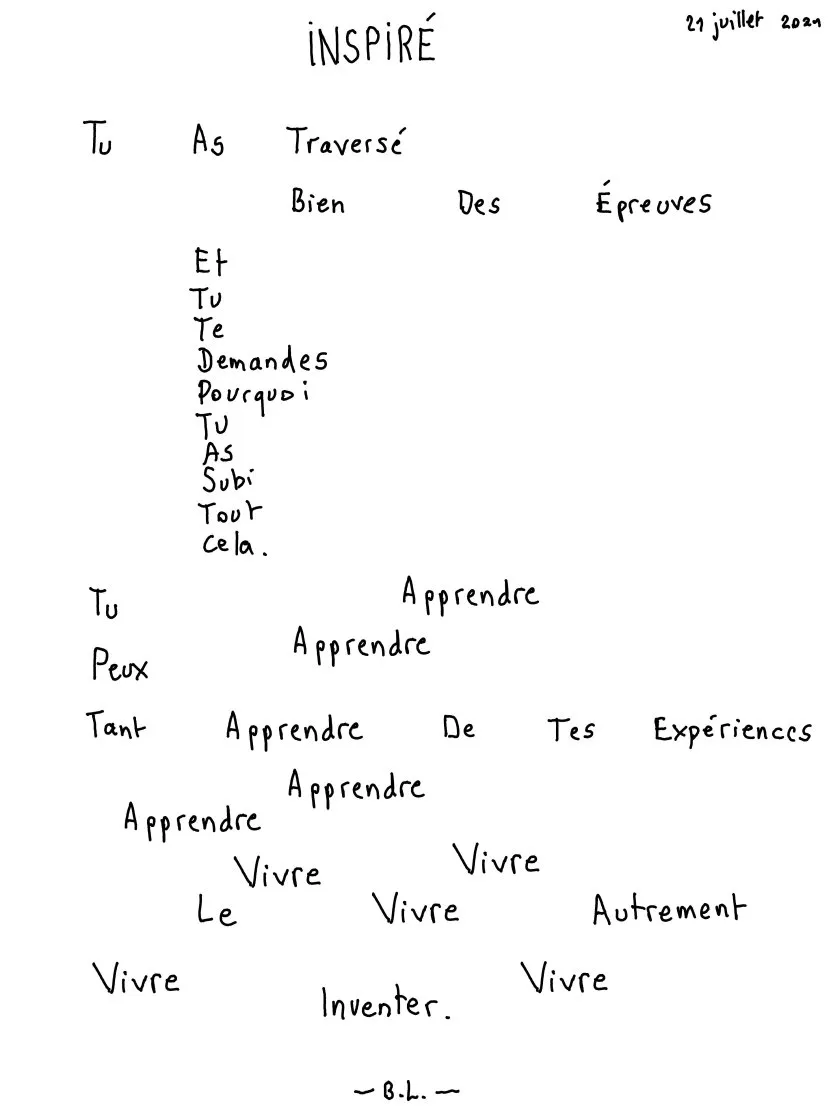 INSPIRÉ
21 juillet 2021
Tu As Traversé
Bien Des Épreuves
Et
Tu
Te
Demandes
Pourquoi
Tu
As
Subi
Tout
Cela.
Tu Apprendre
Peux Apprendre
Tant Apprendre De Tes Expériences
Apprendre
Apprendre
Vivre Vivre
Le Vivre Autrement
Vivre Vivre
Inventer.
— B.L. —